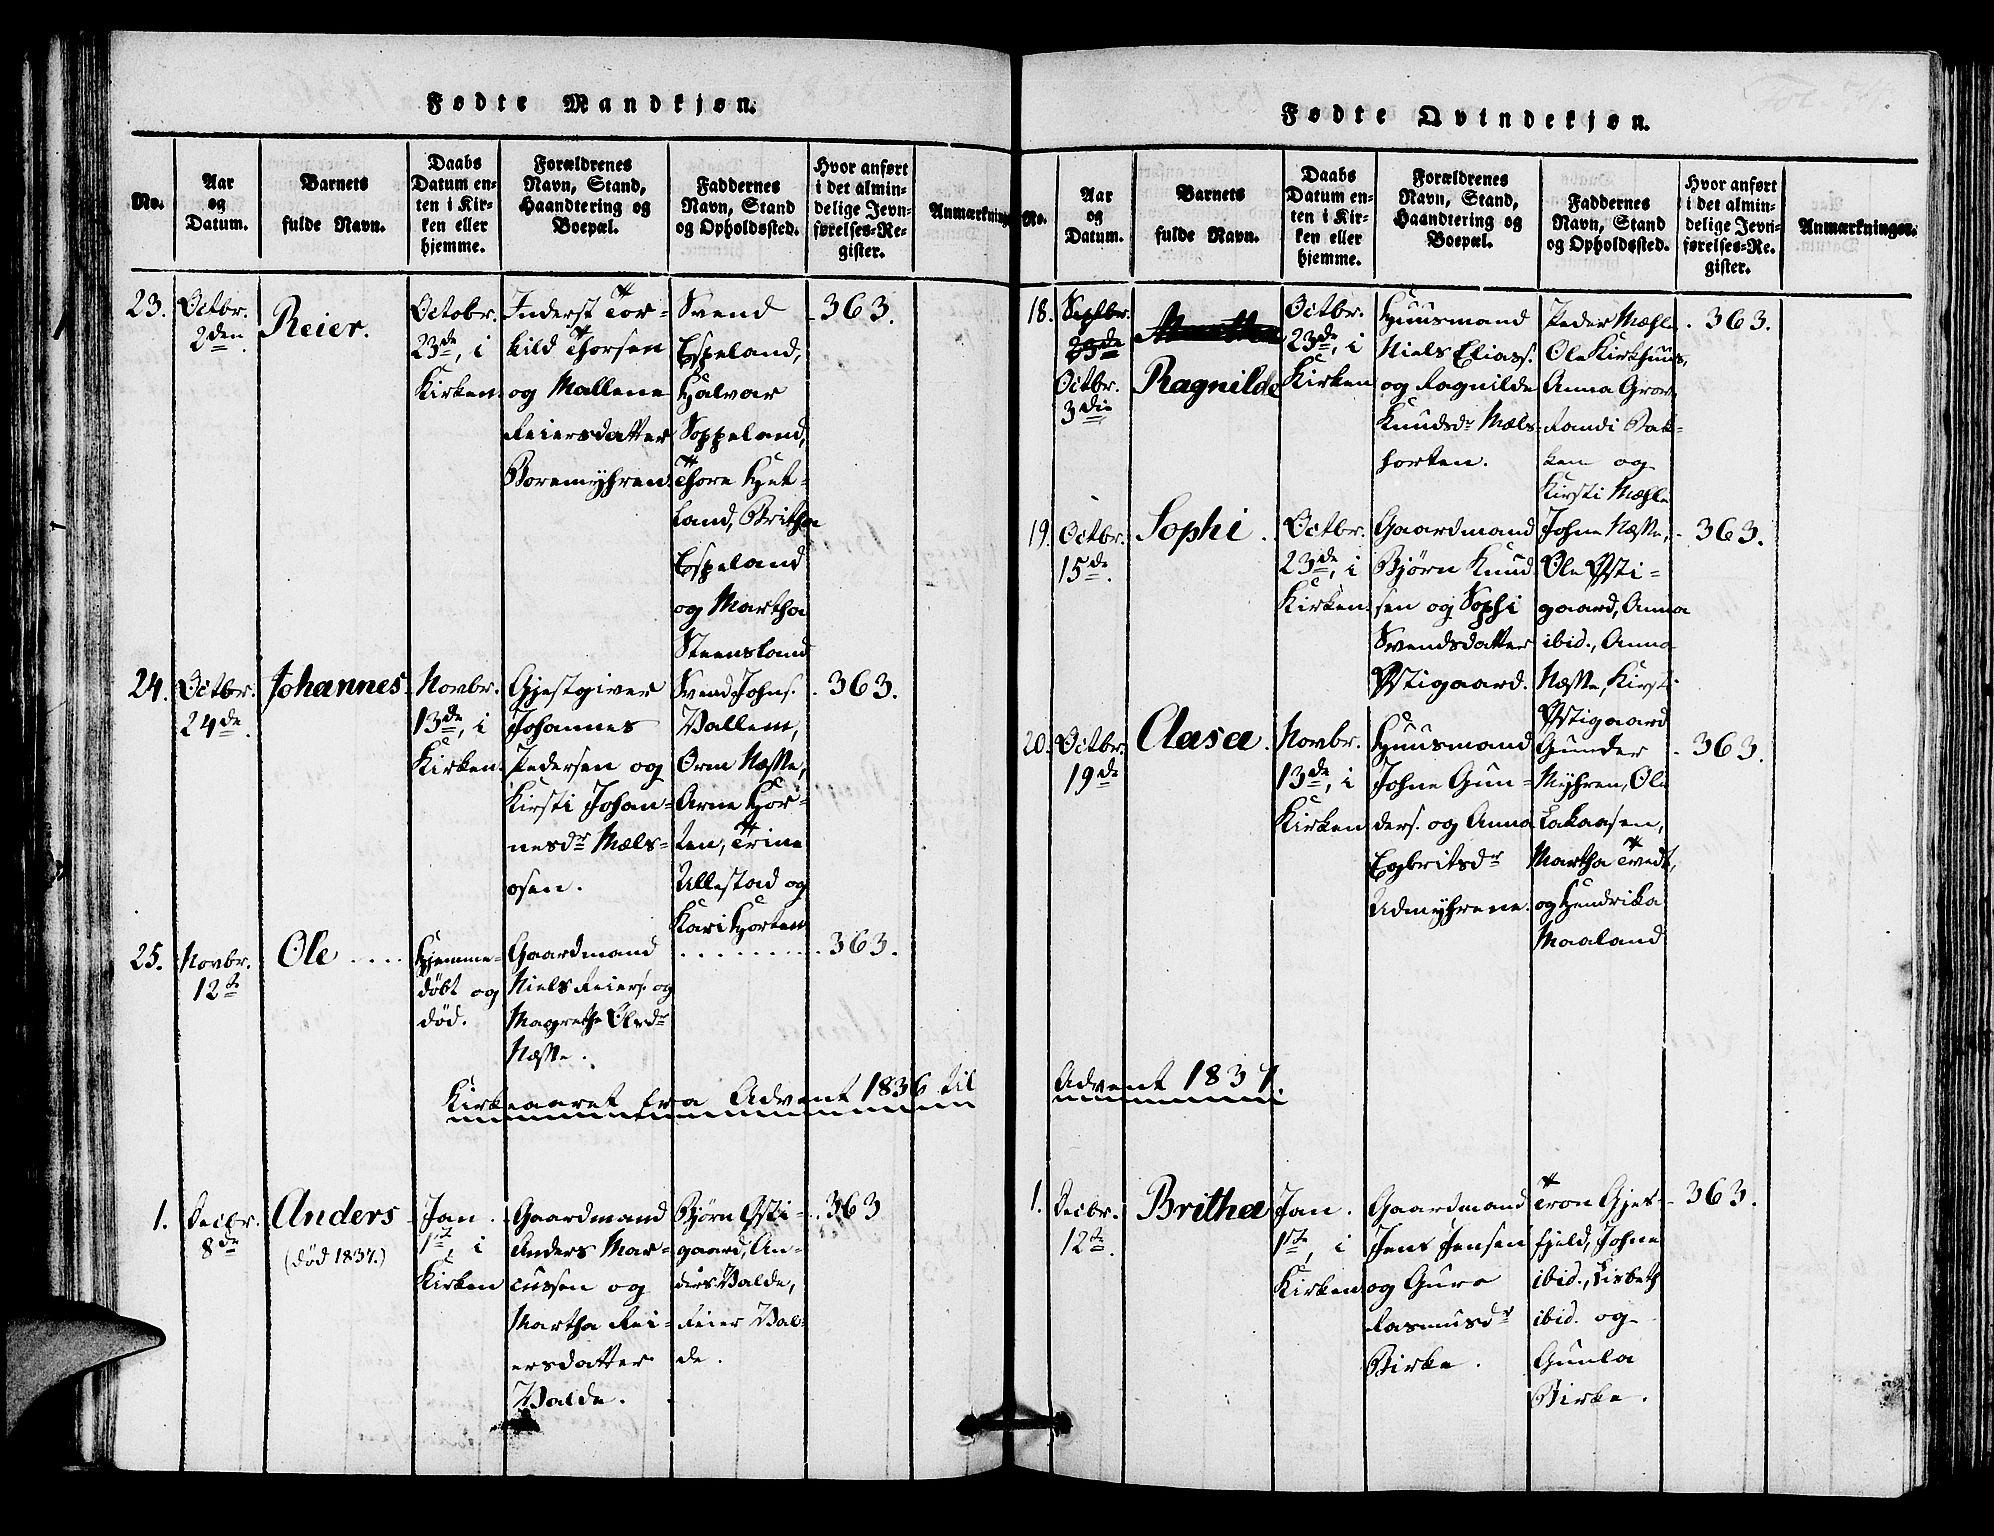 Fødte Mandkjøn.
No.
Aar
og
Datum.
Barnets
fulde Navn.
Daabs
Datum en-
ten i Kir-
ken eller
hjemme.
Forældrenes
Navn, Stand,
Haandtering og
Boepæl.
Faddernes
Navn, Stand
og Opholdssted.
Hvor anført
i det almin-
delige Jevn-
førelses-Re-
gister.
Anmærkning
23.
Octbr.
2den
Reier.
Octobr.
23de, i
Kirken
Inderst Tor-
kild Thorsen
og Mallene
Reiersdatter
Boremyhren
Svend
Espeland,
Halvar
Soppeland,
Thore Het-
land, Britha
Espeland
og Martha
Steensland
363.
24.
Octbr.
24de
Johannes
Novbr.
13de, i
Kirken
Gjestgiver
Johannes
Pedersen og
Kirsti Johan-
nesdr Mæls-
osen.
Svend Johns.
Vallem,
Orm Næsse,
Arne Hor-
ten, Trine
Ullestad og
Kari Horten
363.
25.
Novbr.
12te
Ole ....
Hjemme-
døbt og
død.
Gaardmand
Niels Reiers. og
Magrethe Olsdr
Næsse.
.........
363.
Kirkeaaret fra Advent 1836 til
1.
Decbr.
8de
Anders
(død 1837.)
Jan.
1ste, i
Kirken
Gaardmand
Anders Mar-
cussen og
Martha Rei-
ersdatter
Valde.
Bjørn Østi-
gaard, An-
ders Valde,
Reier Val-
de.
363
Fødte Qvindekjøn.
No.
Aar
og
Datum.
Barnets
fulde Navn.
Daabs
Datum en-
ten i Kir-
ken eller
hjemme.
Forældrenes
Navn, Stand,
Haandtering og
Boepæl.
Faddernes
Navn, Stand
og Opholdssted.
Hvor anført
i det almin-
delige Jevn-
førelses-Re-
gister.
Anmærkninger.
18.
Septbr.
23de
Octbr.
3die
Ragnilde
Octbr.
23de, i
Kirken
Huusmand
Niels Eliass.
og Ragnilde
Knudsdr Mæls-
horten.
Peder Mæhle
Ole Kirkhuus,
Anna Grov
Randi Bak-
ken og
Kirsti Mæhle
363.
19.
Octbr.
15de
Sophi.
Octbr.
23de, i
Kirken
Gaardmand
Bjørn Knud
sen og Sophi
Svendsdatter
Østigaard.
Johne Næsse,
Ole Østi-
gaard, Anna
ibid., Anna
Næsse, Kirsti
Østigaard
363.
20.
Octbr.
19de
Aasa.
Novbr.
13de, i
Kirken
Huusmand
Johne Gun-
ders. og Anna
Egbritsdr
Udmyhrene.
Gunder
Myhren, Ole
Lakaasen,
Martha Tvedt,
og Hendrika
Maaland
363.
Advent 1837.
1.
Decbr.
12te
Britha
Jan.
1ste, i
Kirken
Gaardmand
Jens Jensen
og Guro
Rasmusdr
Birke.
Tron Gjer-
fjeld, Johne
ibid., Lisbeth
ibid. og
Gunla
Birke.
363.